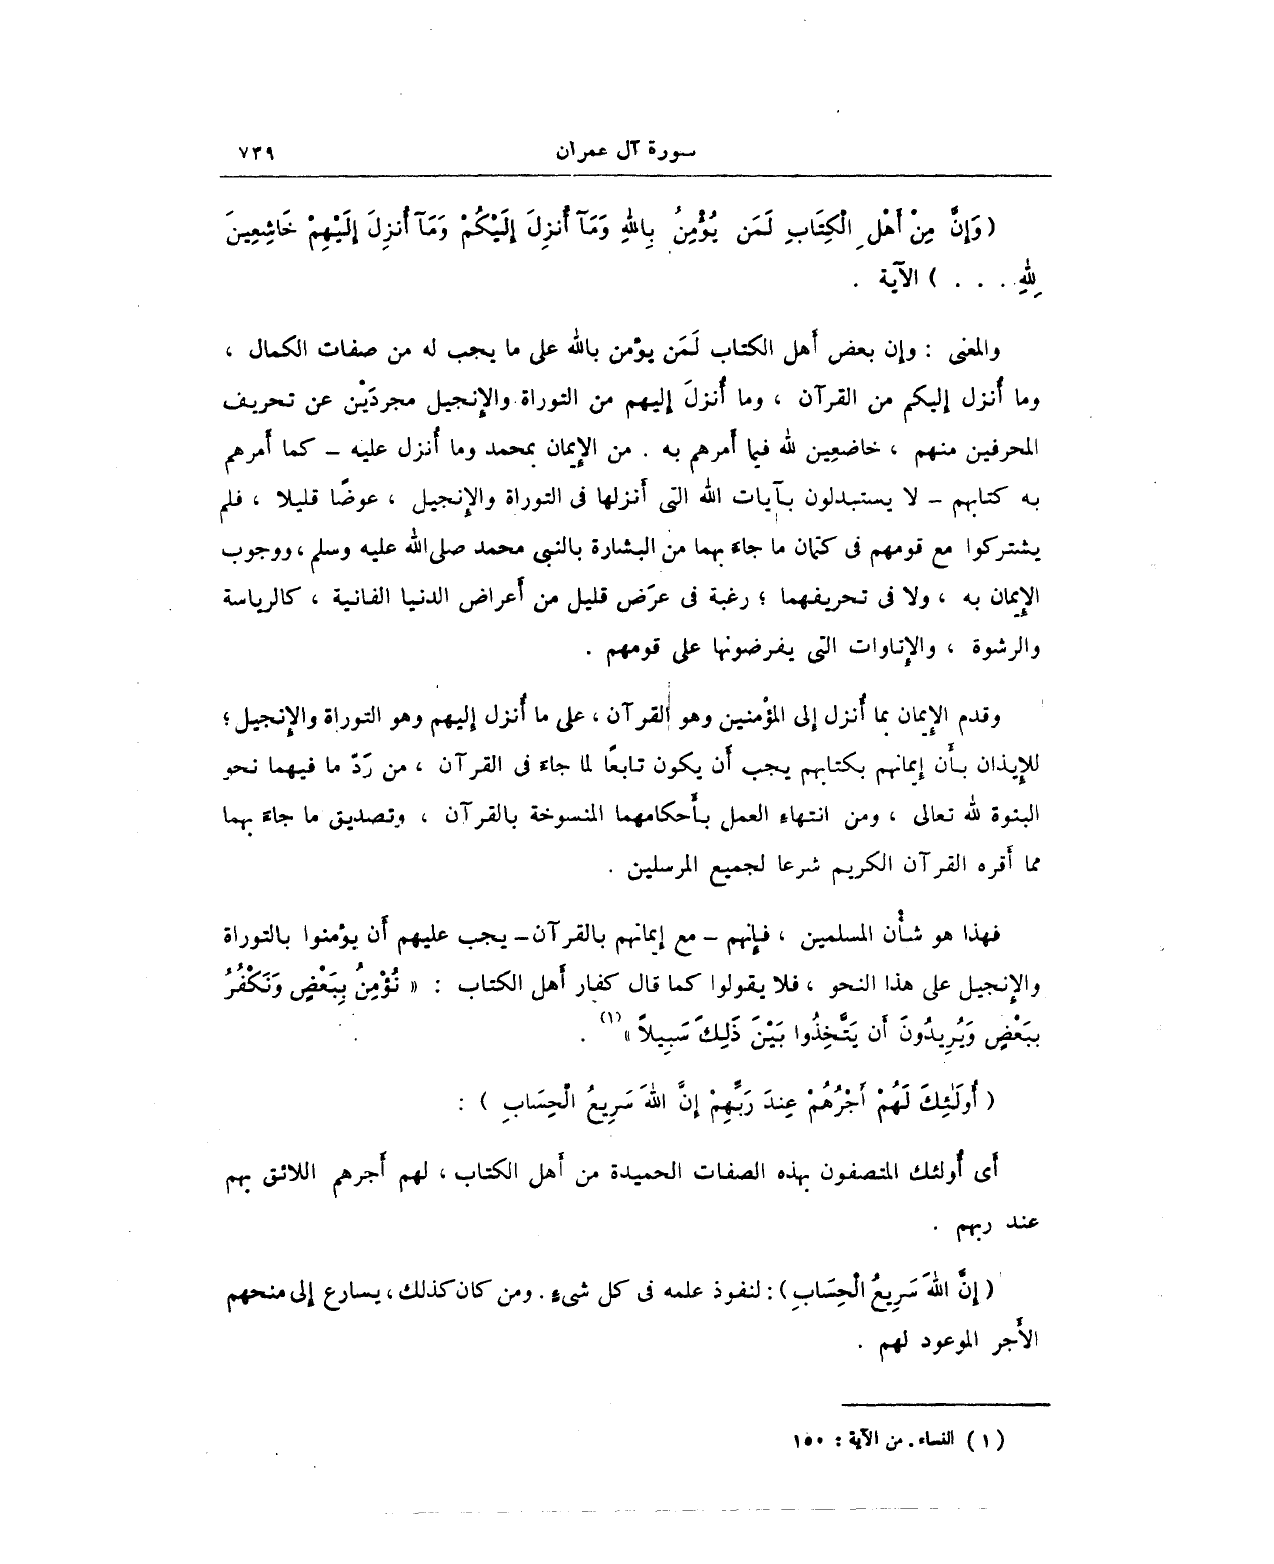 سورة آل عمران ٧٣٩
( وَإِنَّ مِنْ أَهْلِ الْكِتَابِ لَمَن يُؤْمِنُ بِاللهِ وَمَآ أُنزِلَ إِلَيْكُمْ وَمَآ أُنزِلَ إِلَيْهِمْ خَاشِعِينَ
لِلهِ . . . ) الآية .
والمعنى : وإن بعض أهل الكتاب لَمَن يؤمن بالله على ما يجب له من صفات الكمال ،
وما أُنزل إليكم من القرآن ، وما أُنزلَ إليهم من التوراة والإنجيل مجردَيْن عن تحريف
المحرفين منهم ، خاضعين لله فيما أمرهم به . من الإيمان بمحمد وما أُنزل عليه – كما أمرهم
به كتابهم – لا يستبدلون بآيات الله التى أنزلها فى التوراة والإنجيل ، عوضًا قليلا ، فلم
يشتركوا مع قومهم فى كتمان ما جاء بهما من البشارة بالنبى محمد صلى الله عليه وسلم ، ووجوب
الإيمان به ، ولا فى تحريفهما ؛ رغبة فى عرَض قليل من أعراض الدنيا الفانية ، كالرياسة
والرشوة ، والإتاوات التى يفرضونها على قومهم .
وقدم الإيمان بما أُنزل إلى المؤمنين وهو القرآن ، على ما أُنزل إليهم وهو التوراة والإنجيل ؛
للإيذان بأن إيمانهم بكتابهم يجب أن يكون تابعًا لما جاء فى القرآن ، من رَدّ ما فيهما نحو
البنوة لله تعالى ، ومن انتهاء العمل بأحكامهما المنسوخة بالقرآن ، وتصديق ما جاء بهما
مما أقره القرآن الكريم شرعا لجميع المرسلين .
فهذا هو شأن المسلمين ، فإنهم – مع إيمانهم بالقرآن – يجب عليهم أن يؤمنوا بالتوراة
والإنجيل على هذا النحو ، فلا يقولوا كما قال كفار أهل الكتاب : « نُؤْمِنُ بِبَعْضٍ وَنَكْفُرُ
بِبَعْضٍ وَيُرِيدُونَ أَن يَتَّخِذُوا بَيْنَ ذَلِكَ سَبِيلاً » (١) .
( أُولَـٰئِكَ لَهُمْ أَجْرُهُمْ عِندَ رَبِّهِمْ إِنَّ اللهَ سَرِيعُ الْحِسَابِ ) :
أى أُولئك المتصفون بهذه الصفات الحميدة من أهل الكتاب ، لهم أجرهم اللائق بهم
عند ربهم .
( إِنَّ اللهَ سَرِيعُ الْحِسَابِ ) : لنفوذ علمه فى كل شىء . ومن كان كذلك ، يسارع إلى منحهم
الأجر الموعود لهم .
( ١ ) النساء . من الآية : ١٥٠